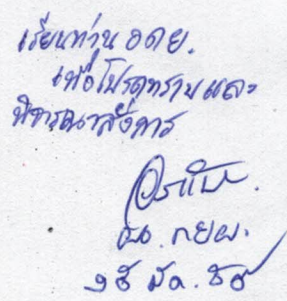 เรียนท่าน อดย.
เพื่อโปรดทราบและ
พิจารณาสั่งการ
ผอ. กยผ.